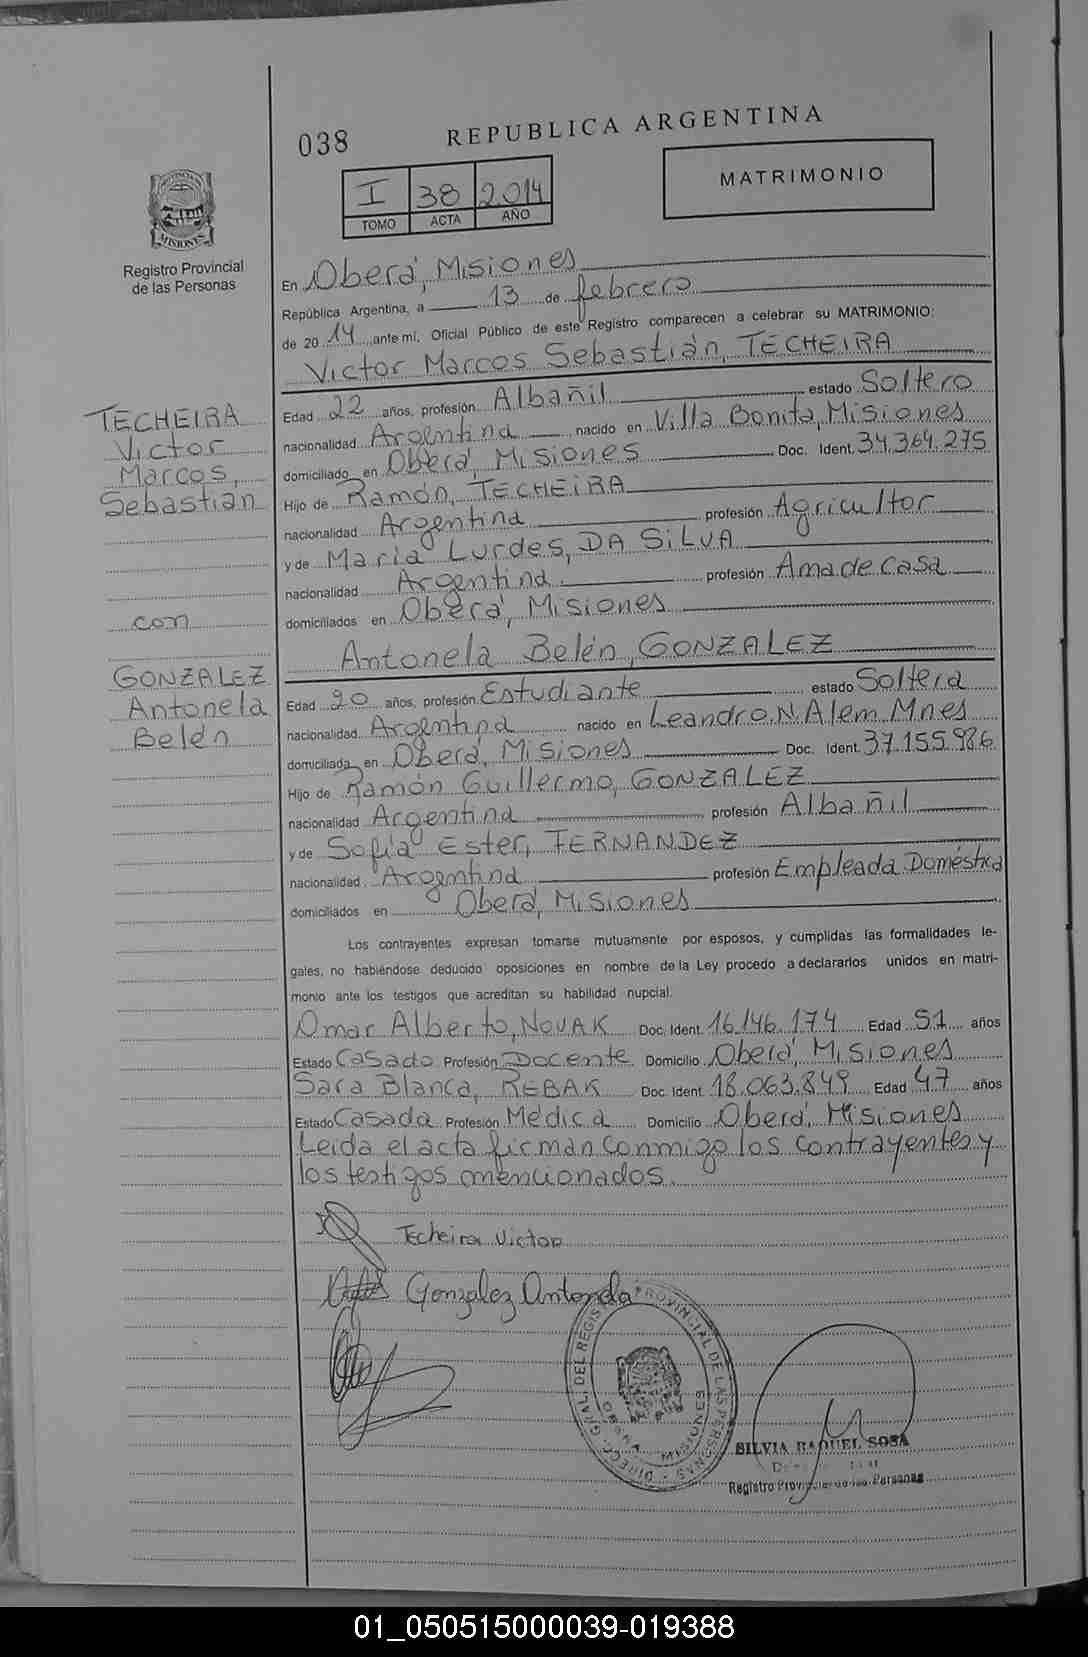 038
REPUBLICA ARGENTINA
MATRIMONIO
I 38 2014
TOMO ACTA AÑO
PROVINCIA
MISIONES
Registro Provincial
de las Personas
En Oberá, Misiones
República Argentina, a 13 de febrero
de 20 14 ante mi, Oficial Público de este Registro comparecen a celebrar su MATRIMONIO:
Victor Marcos Sebastián, TECHEIRA
Edad 22 años, profesión Albañil estado Soltero
nacionalidad Argentina nacido en Villa Bonita, Misiones
domiciliado en Oberá, Misiones Doc. Ident. 34.364.275
Hijo de Ramón, TECHEIRA
nacionalidad Argentina profesión Agricultor
y de Maria Lurdes, DA SILVA
nacionalidad Argentina profesión Ama de casa
domiciliados en Oberá, Misiones
TECHEIRA
Victor
Marcos,
Sebastián
con
GONZALEZ
Antonela
Belén
Antonela Belén, GONZALEZ
Edad 20 años, profesión Estudiante estado Soltera
nacionalidad Argentina nacido en Leandro N. Alem Mnes
domiciliada en Oberá, Misiones Doc. Ident. 37.155.986
Hijo de Ramón Guillermo, GONZALEZ
nacionalidad Argentina profesión Albañil
y de Sofía Ester, FERNANDEZ
nacionalidad Argentina profesión Empleada Doméstica
domiciliados en Oberá, Misiones
Los contrayentes expresan tomarse mutuamente por esposos, y cumplidas las formalidades le-
gales, no habiéndose deducido oposiciones en nombre de la Ley procedo a declararlos unidos en matri-
monio ante los testigos que acreditan su habilidad nupcial.
Omar Alberto, NOVAK Doc. Ident. 16.146.174 Edad 51 años
Estado Casado Profesión Docente Domicilio Oberá, Misiones
Sara Blanca, REBAK Doc. Ident. 18.063.849 Edad 47 años
Estado Casada Profesión Médica Domicilio Oberá, Misiones
Leida el acta firman conmigo los contrayentes y
los testigos mencionados.
Techeira Victor
Gonzalez Antonela
DIRECC. GRAL. DEL REGISTRO PROVINCIAL DE LAS PERSONAS
MISIONES
SILVIA RAQUEL SOSA
Registro Provincial de las Personas
01_050515000039-019388